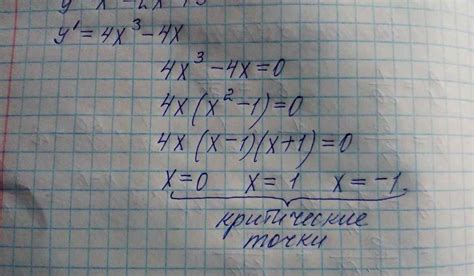 y' = 4x³ - 4x
4x³ - 4x = 0
4x(x² - 1) = 0
4x(x - 1)(x + 1) = 0
x = 0 x = 1 x = -1
критические
точки